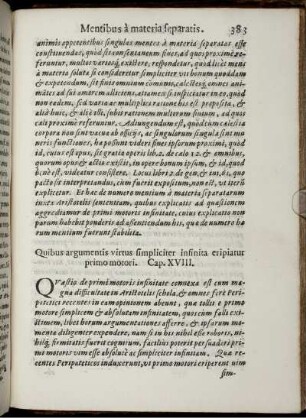 Mentibus à materia separatis. 383
animis appetentibus singulas mentes à materia separatas esse
constituendas, quod si consentaneum sit
feruntur, multos variosq; existere, respondetur, quòd licet mens
à materia soluta si consideretur simpliciter vti bonum quoddam
& expetendum, sit finis omnium communis,
mates ad sui amorem alliciens, attamen
non eadem, sed varia ac multiplex ratione his est proposita, &
aliis huic, & aliis illi, subit rationem multorum finium, ad quos
cœli orbes proximè feruntur. Adiungendum est, quòd cœlestia
corpora non sunt vacua ab officijs, ac singulorum singula sunt mu
neris functiones, ha possint videri fines ipsorum proximi, quòd
id, cuius est opus, sit gratia operis
quorum opus & actio existit, in opere bonum ipsum, & id, quod
bus est, videatur consistere. Locus libri 2. de gen. & int.
patio interpretandus, eius fuerit expositum, non est, vt verita-
rius explicetur. Et hæc de numero mentium à materia separatarum
iuxta Aristotelis sententiam, quibus explicatis ad quæstionem
aggrediamur de primi motoris infinitate, cuius explicatio non
parum habebit ponderis ad asserenda illa, quæ de numero ha
rum mentium fuerunt stabilita.
Quibus argumentis virtus simpliciter infinita eripiatur
primo motori. Cap. XVIII.
Quæstio de primi motoris infinitate connexa est cum ma-
gna difficultate in Aristotelis schola, & omnes ferè Peri-
patetici recentes in eam opinionem abeunt, qua tollit è primo
motore simplicem & absolutam infinitatem, quorum falli exi-
stimem, libet horum argumentationes afferre, & ipsarum mo-
menta diligenter expendere, nam si in his nihil esse roboris, ni-
hilq; firmitatis fuerit cognitum, facilius poterit persuaderi pri-
mo motoris vim esse absolutè ac simpliciter infinitam. Quæ re
centes Peripateticos induxerunt, vt primo motori eriperent vim
sim-